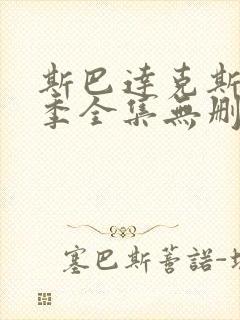 斯巴達克斯
季全集無刪
塞巴斯蒂諾-坎